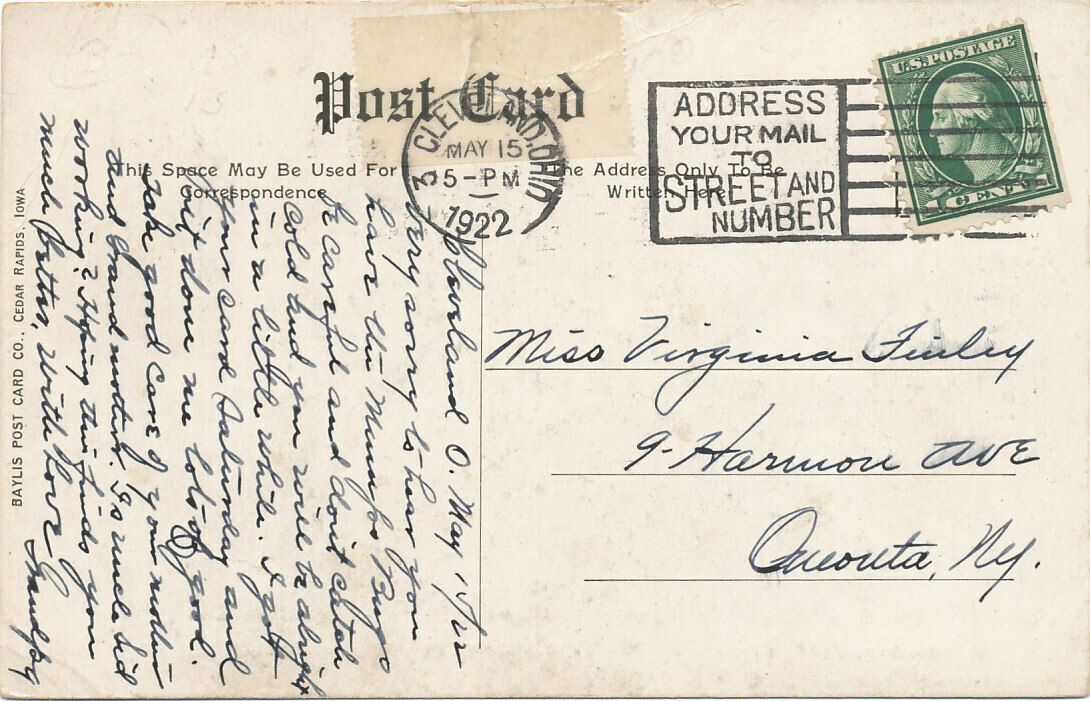 Post Card
CLEVELAND, OHIO
MAY 15
5-PM
1922
3
ADDRESS
YOUR MAIL
TO
STREET AND
NUMBER
U.S. POSTAGE
1 CENT 1
This Space May Be Used For
Correspondence
The Address Only To Be
Written Here
BAYLIS POST CARD CO., CEDAR RAPIDS, IOWA
Cleveland O. May 15/22
Very sorry to hear you
have the Mumps
Be careful and don't catch
cold and you will be alright
in a little while. I got
your card Saturday and
it done me lots of good.
Take good care of your mother
and Grand mother. Is uncle Sid
working? Hoping this finds you
much better, with love
Miss Virginia Finley
9 Harmon Ave
Oneonta, Ny.